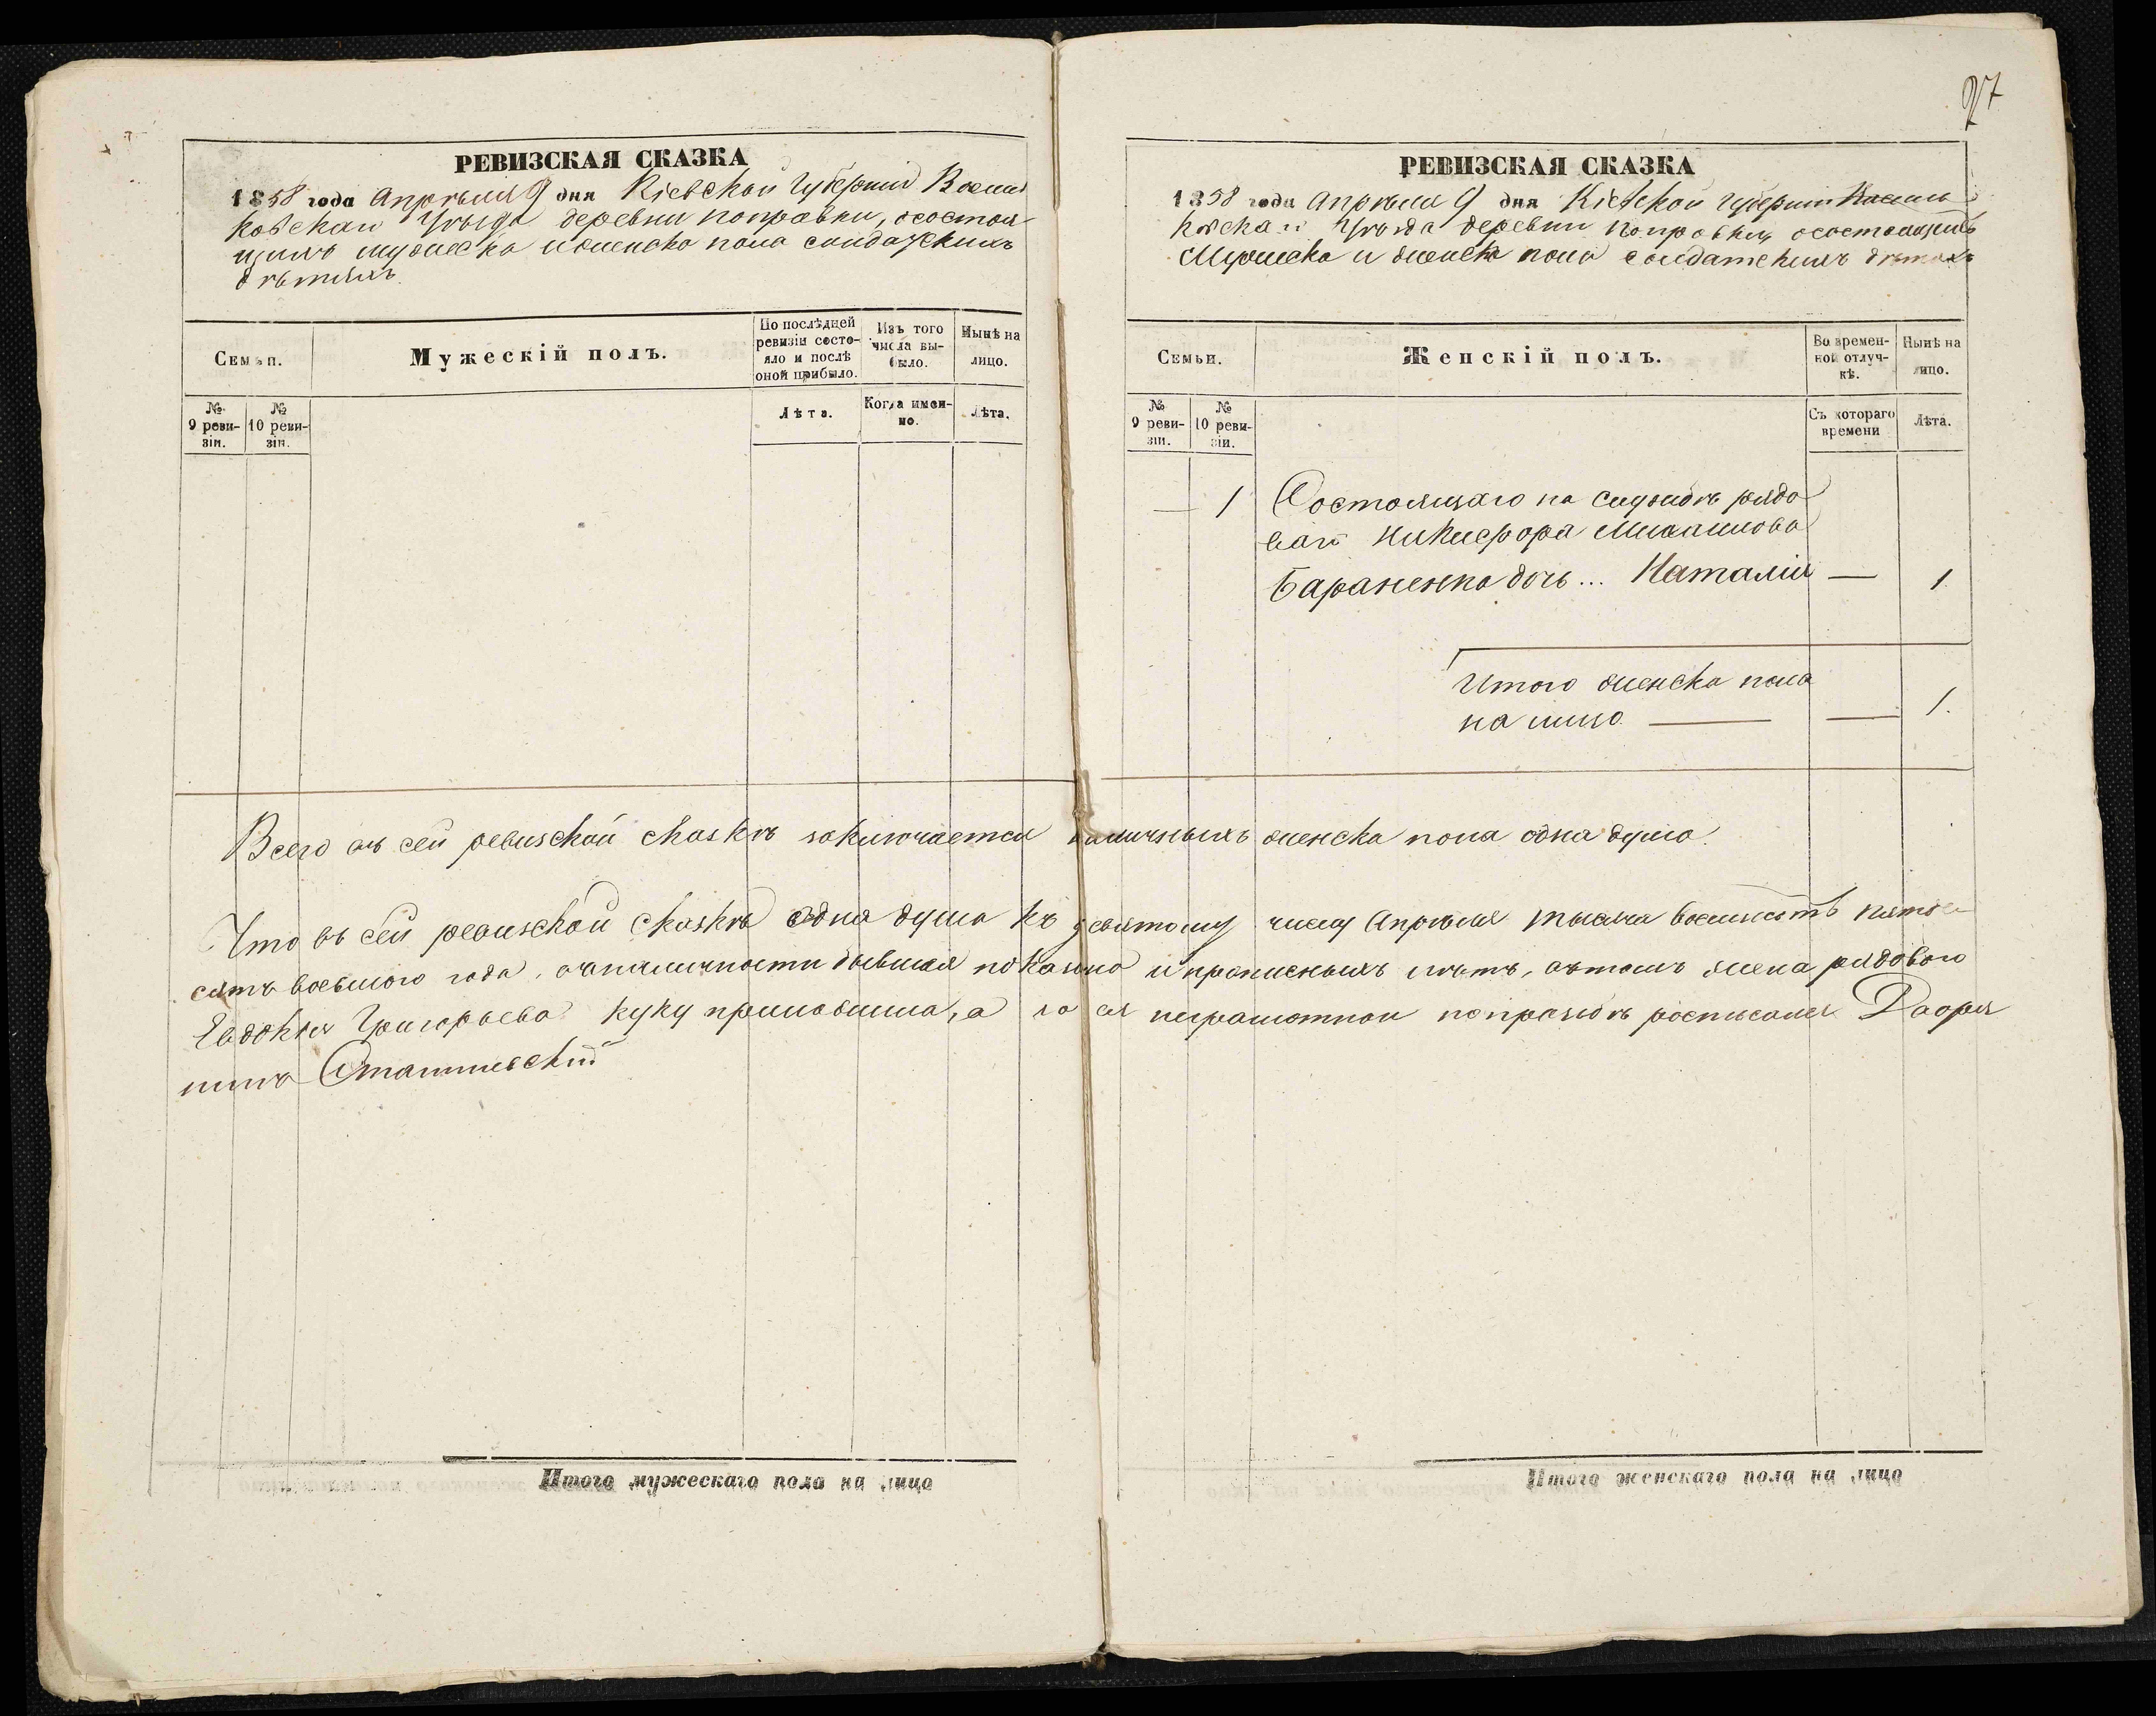 27
РЕВИЗСКАЯ СКАЗКА
1858 года Апрѣля 9 дня Кіевской Губерніи Василь
ковскаго Уѣзда деревни Поправки, о состоя
щихъ мужеска и женска пола солдатскихъ
дѣтяхъ.
Семьи.
Мужескій полъ.
По послѣдней ревизіи состо-
яло и послѣ оной прибыло.
Изъ того числа вы-
было.
Нынѣ на лицо.
№ 9 реви-
зіи.
№ 10 реви-
зіи.
Лѣта.
Когда имен-
но.
Лѣта.
РЕВИЗСКАЯ СКАЗКА
1858 года Апрѣля 9 дня Кіевской Губерніи Василь
ковскаго Уѣзда деревни Поправки, о состоящихъ
Мужеска и женска пола солдатскихъ дѣтяхъ
Семьи.
Женскій полъ.
Во времен-
ной отлуч-
кѣ.
Нынѣ на лицо.
№ 9 реви-
зіи.
№ 10 реви-
зіи.
Съ котораго времени
Лѣта.
— 1 Состоящаго на службѣ рядо
ваго Никифора
Бараненка дочь... Наталія — 1
Итого женска пола
на лицо — — 1.
Всего въ сей ревизской сказкѣ заключается наличныхъ женска пола одна душа.
Что въ сей ревизской сказкѣ одна душа къ девятому числу Апрѣля тысяча восемьсотъ пятьде
сятъ восьмого года, въ наличности бывшая показана и прописныхъ нѣтъ, въ томъ жена рядового
Евдокія Григорьева руку приложила, а за ея неграмотной по прозьбѣ росписался Дворя
нинъ
Итого мужескаго пола на лицо
Итого женскаго пола на лицо